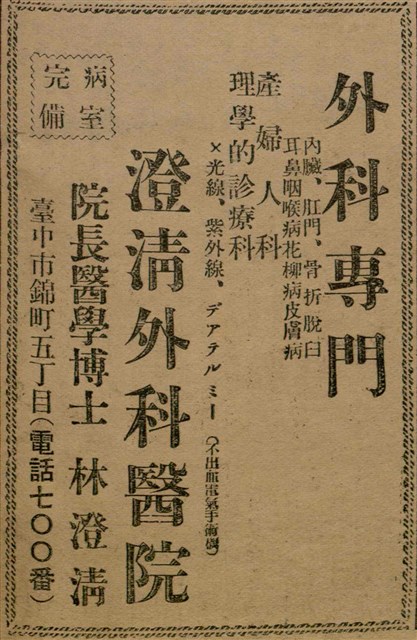 外科專門
內臟、肛門、骨折脫臼
耳鼻咽喉病花柳病皮膚病
產婦人科
理學的診療科
×光線、紫外線、デアテルミー(不出血電氣手術機)
澄淸外科醫院
院長醫學博士 林澄淸
臺中市錦町五丁目(電話七〇〇番)
病室
完備